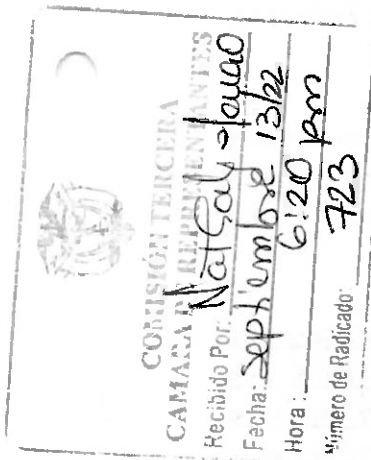 COMISIÓN TERCERA
CAMARA DE REPRESENTANTES
Recibido Por: Nataly
Fecha: Septiembre 13/22
Hora: 6:20 pm
Número de Radicado: 723